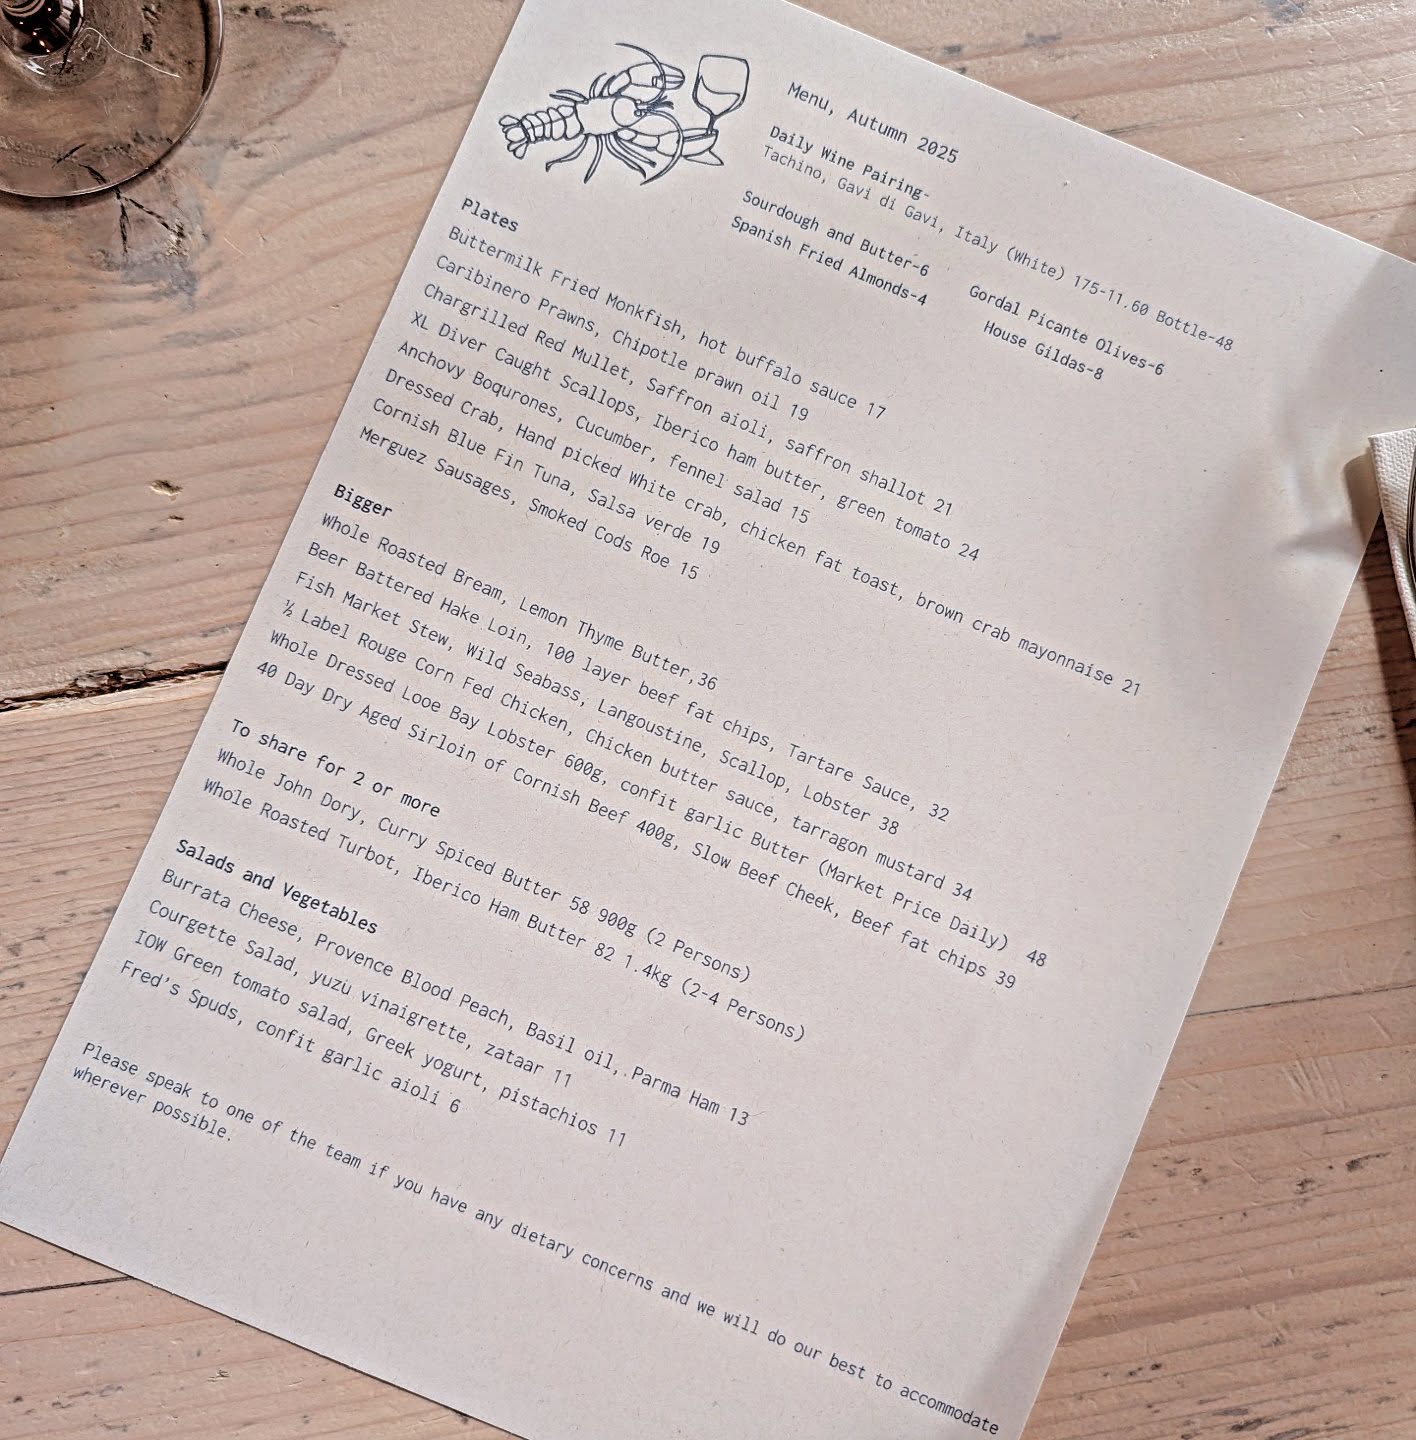 Menu, Autumn 2025
Daily Wine Pairing-
Tachino, Gavi di Gavi, Italy (White) 175-11.60 Bottle-48
Sourdough and Butter-6
Gordal Picante Olives-6
Spanish Fried Almonds-4
House Gildas-8
Plates
Buttermilk Fried Monkfish, hot buffalo sauce 17
Caribinero Prawns, Chipotle prawn oil 19
Chargrilled Red Mullet, Saffron aioli, saffron shallot 21
XL Diver Caught Scallops, Iberico ham butter, green tomato 24
Anchovy Boqurones, Cucumber, fennel salad 15
Dressed Crab, Hand picked White crab, chicken fat toast, brown crab mayonnaise 21
Cornish Blue Fin Tuna, Salsa verde 19
Merguez Sausages, Smoked Cods Roe 15
Bigger
Whole Roasted Bream, Lemon Thyme Butter,36
Beer Battered Hake Loin, 100 layer beef fat chips, Tartare Sauce, 32
Fish Market Stew, Wild Seabass, Langoustine, Scallop, Lobster 38
½ Label Rouge Corn Fed Chicken, Chicken butter sauce, tarragon mustard 34
Whole Dressed Looe Bay Lobster 600g, confit garlic Butter (Market Price Daily) 48
40 Day Dry Aged Sirloin of Cornish Beef 400g, Slow Beef Cheek, Beef fat chips 39
To share for 2 or more
Whole John Dory, Curry Spiced Butter 58 900g (2 Persons)
Whole Roasted Turbot, Iberico Ham Butter 82 1.4kg (2-4 Persons)
Salads and Vegetables
Burrata Cheese, Provence Blood Peach, Basil oil, Parma Ham 13
Courgette Salad, yuzu vinaigrette, zataar 11
IOW Green tomato salad, Greek yogurt, pistachios 11
Fred's Spuds, confit garlic aioli 6
Please speak to one of the team if you have any dietary concerns and we will do our best to accommodate
wherever possible.